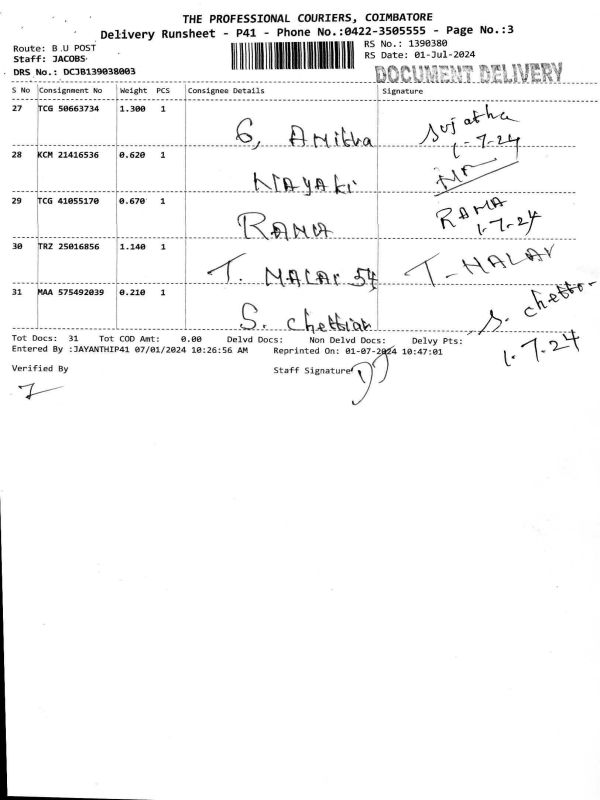 THE PROFESSIONAL COURIERS, COIMBATORE
Delivery Runsheet - P41 - Phone No.:0422-3505555 - Page No.:3
Route: B.U POST RS No.: 1390380
Staff: JACOBS RS Date: 01-Jul-2024
DRS No.: DCJB139038003 DOCUMENT DELIVERY
S No Consignment No Weight PCS Consignee Details Signature
27 TCG 50663734 1.300 1
G, Amitha Sujatha
1-7-24
28 KCM 21416536 0.620 1
NAYAKi
29 TCG 41055170 0.670 1
RAMA RAMA
1-7-24
30 TRZ 25016856 1.140 1
T. MALAR 54 T-MALAR
31 MAA 575492039 0.210 1
S. chettiar S. chettor
Tot Docs: 31 Tot COD Amt: 0.00 Delvd Docs: Non Delvd Docs: Delvy Pts:
Entered By :JAYANTHIP41 07/01/2024 10:26:56 AM Reprinted On: 01-07-2024 10:47:01
1-7-24
Verified By Staff Signature